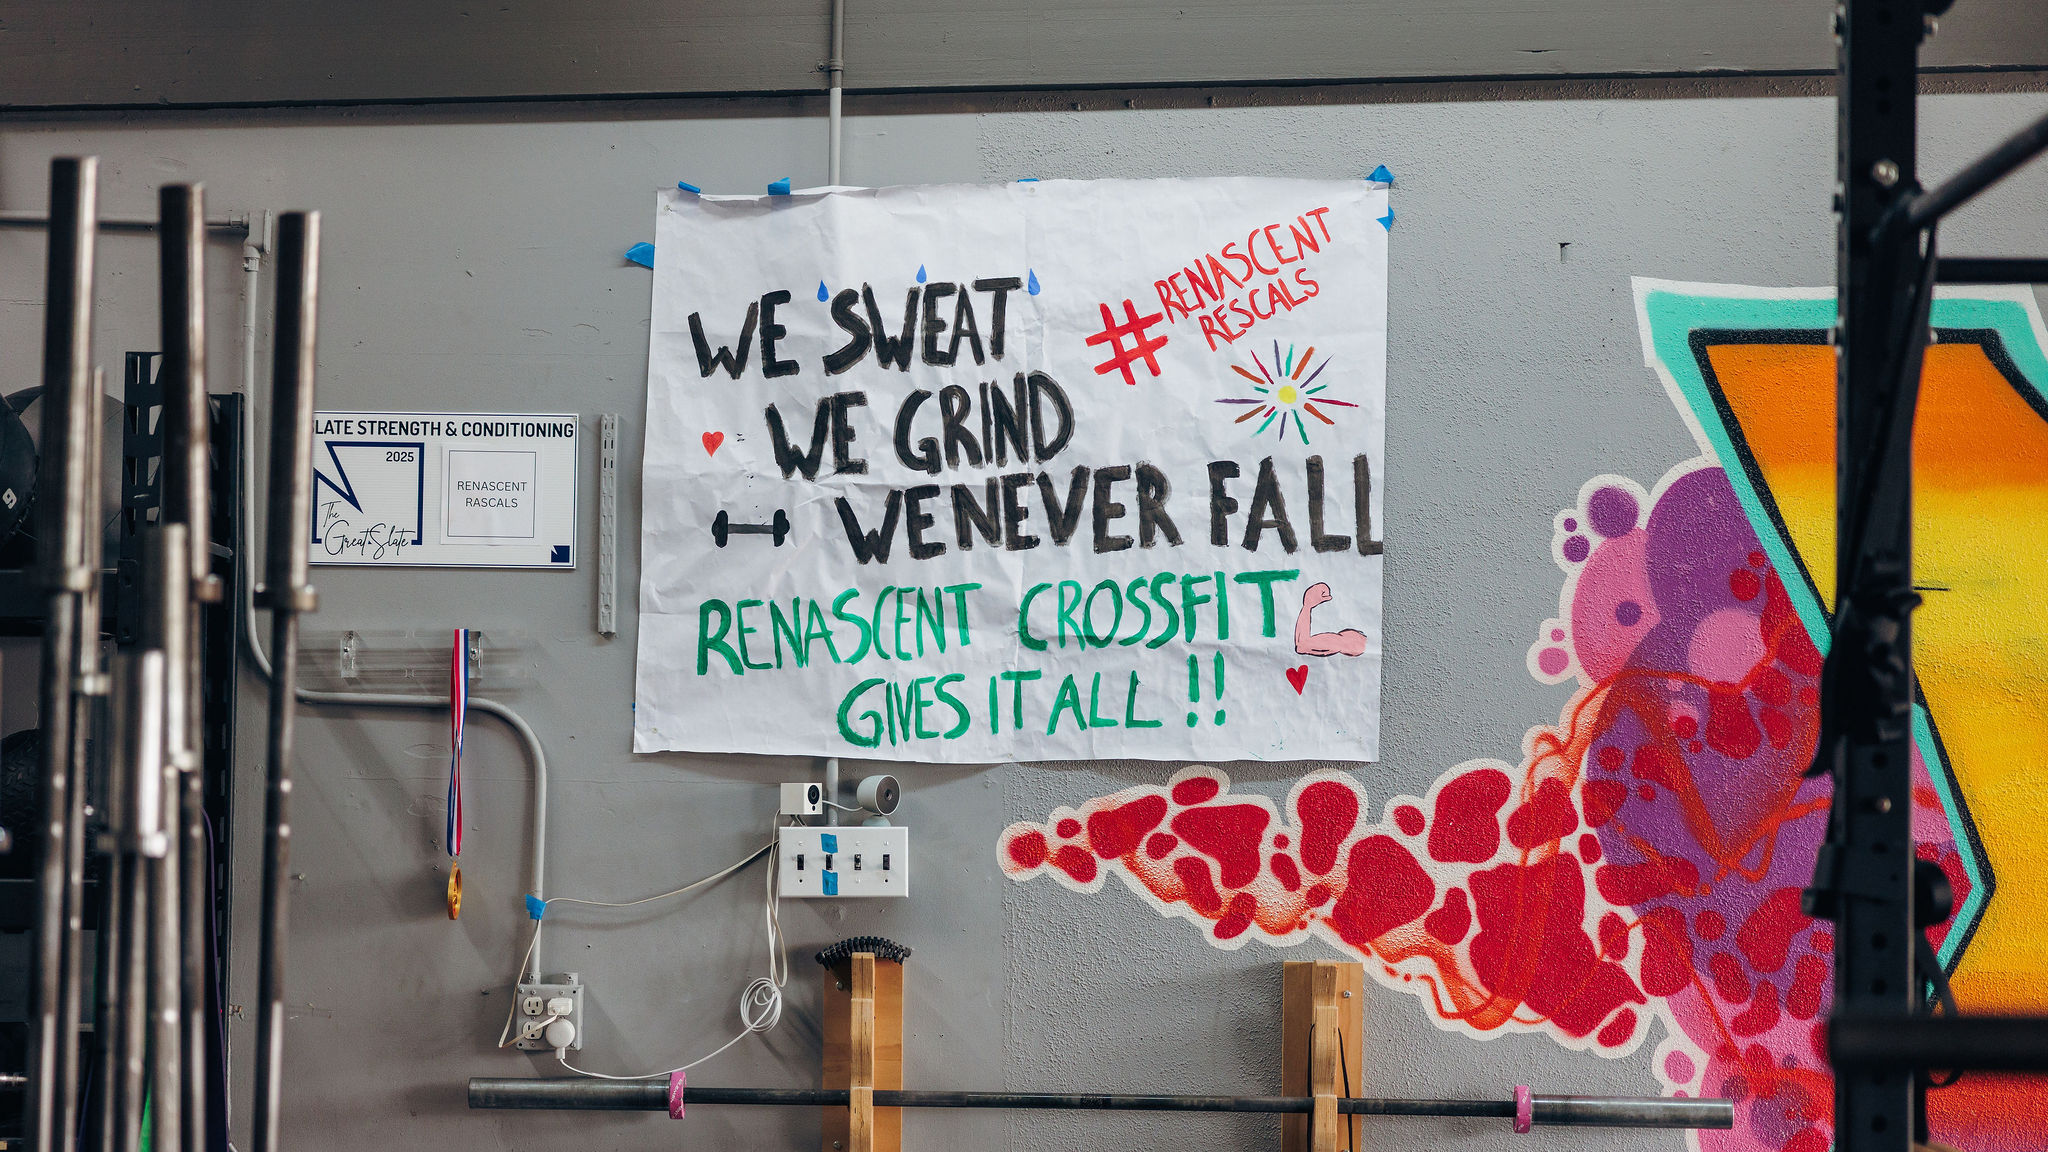 WE SWEAT
WE GRIND
WE NEVER FALL
RENASCENT CROSSFIT
GIVES IT ALL !!
#RENASCENT
RESCALS
LATE STRENGTH & CONDITIONING
2025
The
Great Slate
RENASCENT
RASCALS
9